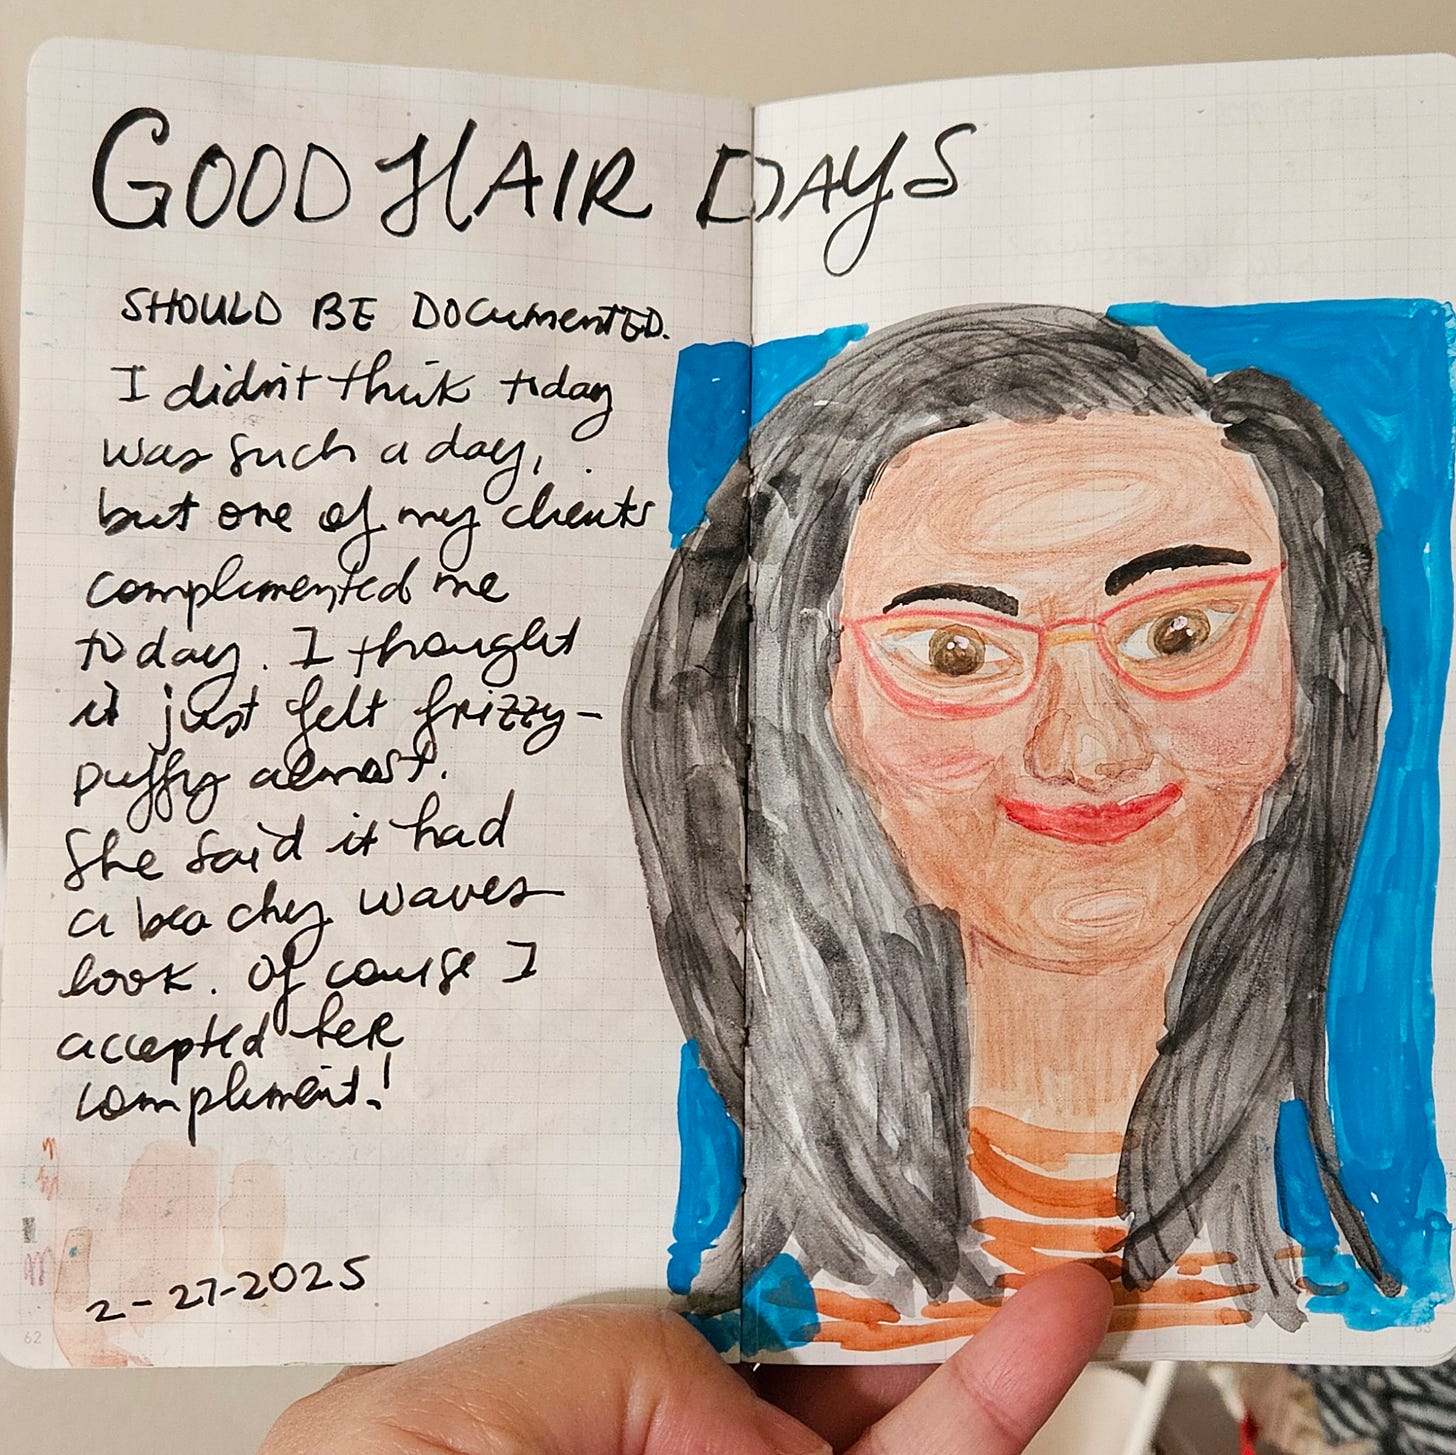 GOOD HAIR DAYS
SHOULD BE DOCUMENTED.
I didn't think today
was such a day,
but one of my clients
complimented me
today. I thought
it just felt frizzy-
puffy almost.
She said it had
a beachy waves
look. Of course I
accepted her
compliment!
2-27-2025
62
63